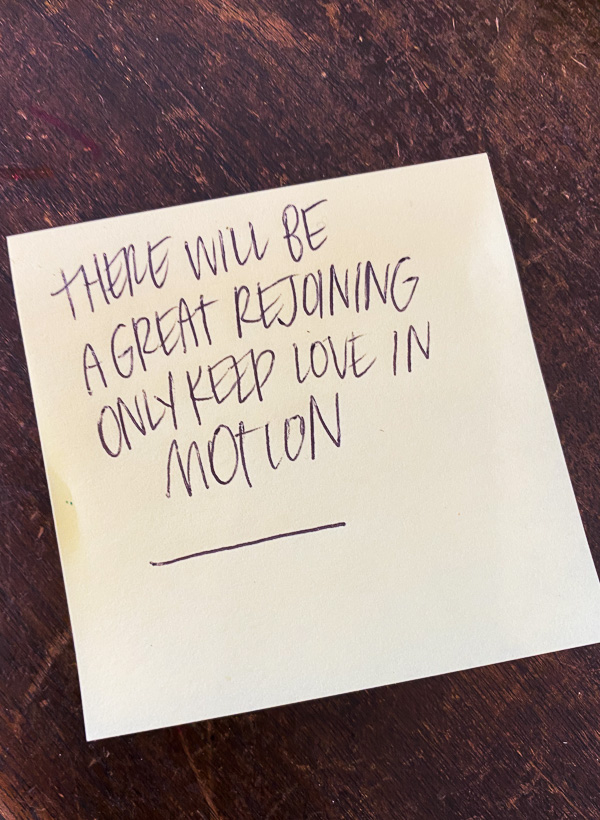 THERE WILL BE
A GREAT REJOINING
ONLY KEEP LOVE IN
MOTION